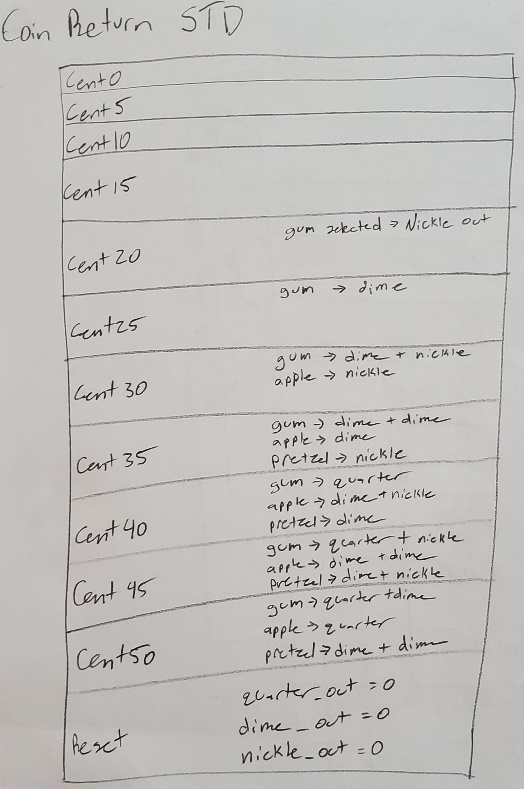 Coin Return STD
Cent 0
Cent 5
Cent 10
Cent 15
gum selected → Nickle out
Cent 20
gum → dime
Cent 25
gum → dime + nickle
apple → nickle
Cent 30
gum → dime + dime
apple → dime
Cent 35
pretzel → nickle
gum → quarter
apple → dime + nickle
Cent 40
pretzel → dime
gum → quarter + nickle
apple → dime + dime
Cent 45
pretzel → dime + nickle
gum → quarter + dime
apple → quarter
Cent 50
pretzel → dime + dime
quarter_out = 0
dime_out = 0
Reset
nickle_out = 0